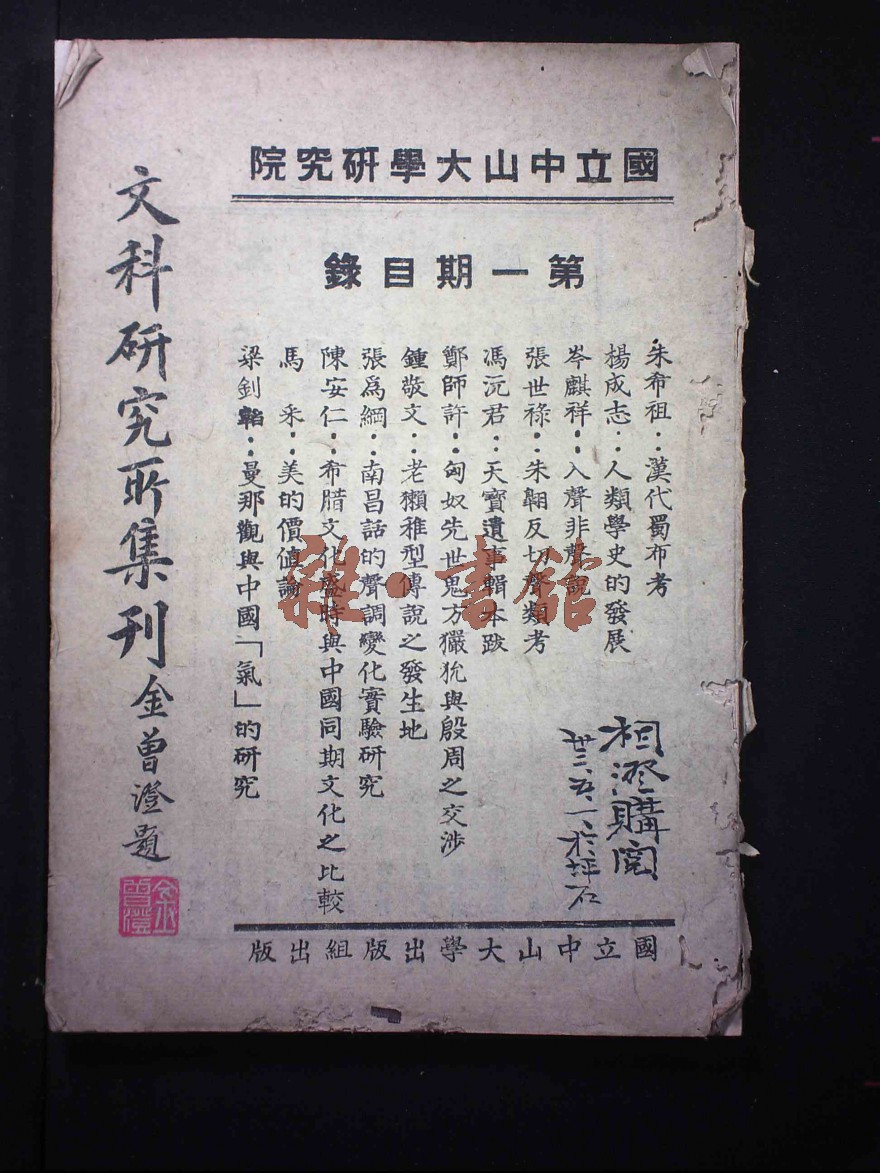 國立中山大學研究院
第一期目錄
朱希祖：漢代蜀布考
楊成志：人類學史的發展
岑麒祥：入聲非聲說
張世祿：朱翱反切聲類考
馮沅君：天寶遺事輯本跋
鄭師許：匈奴先世鬼方玁狁與殷周之交涉
鍾敬文：老獺稚型傳說之發生地
張為綱：南昌話的聲調變化實驗研究
陳安仁：希腊文化盛時與中國同期文化之比較
馬采：美的價值論
梁釗韜：曼那觀與中國「氣」的研究
文科研究所集刊 金曾澄題
金曾澄
澄購閱
卅三、五、一、於坪石
國立中山大學出版組出版
雜·書館